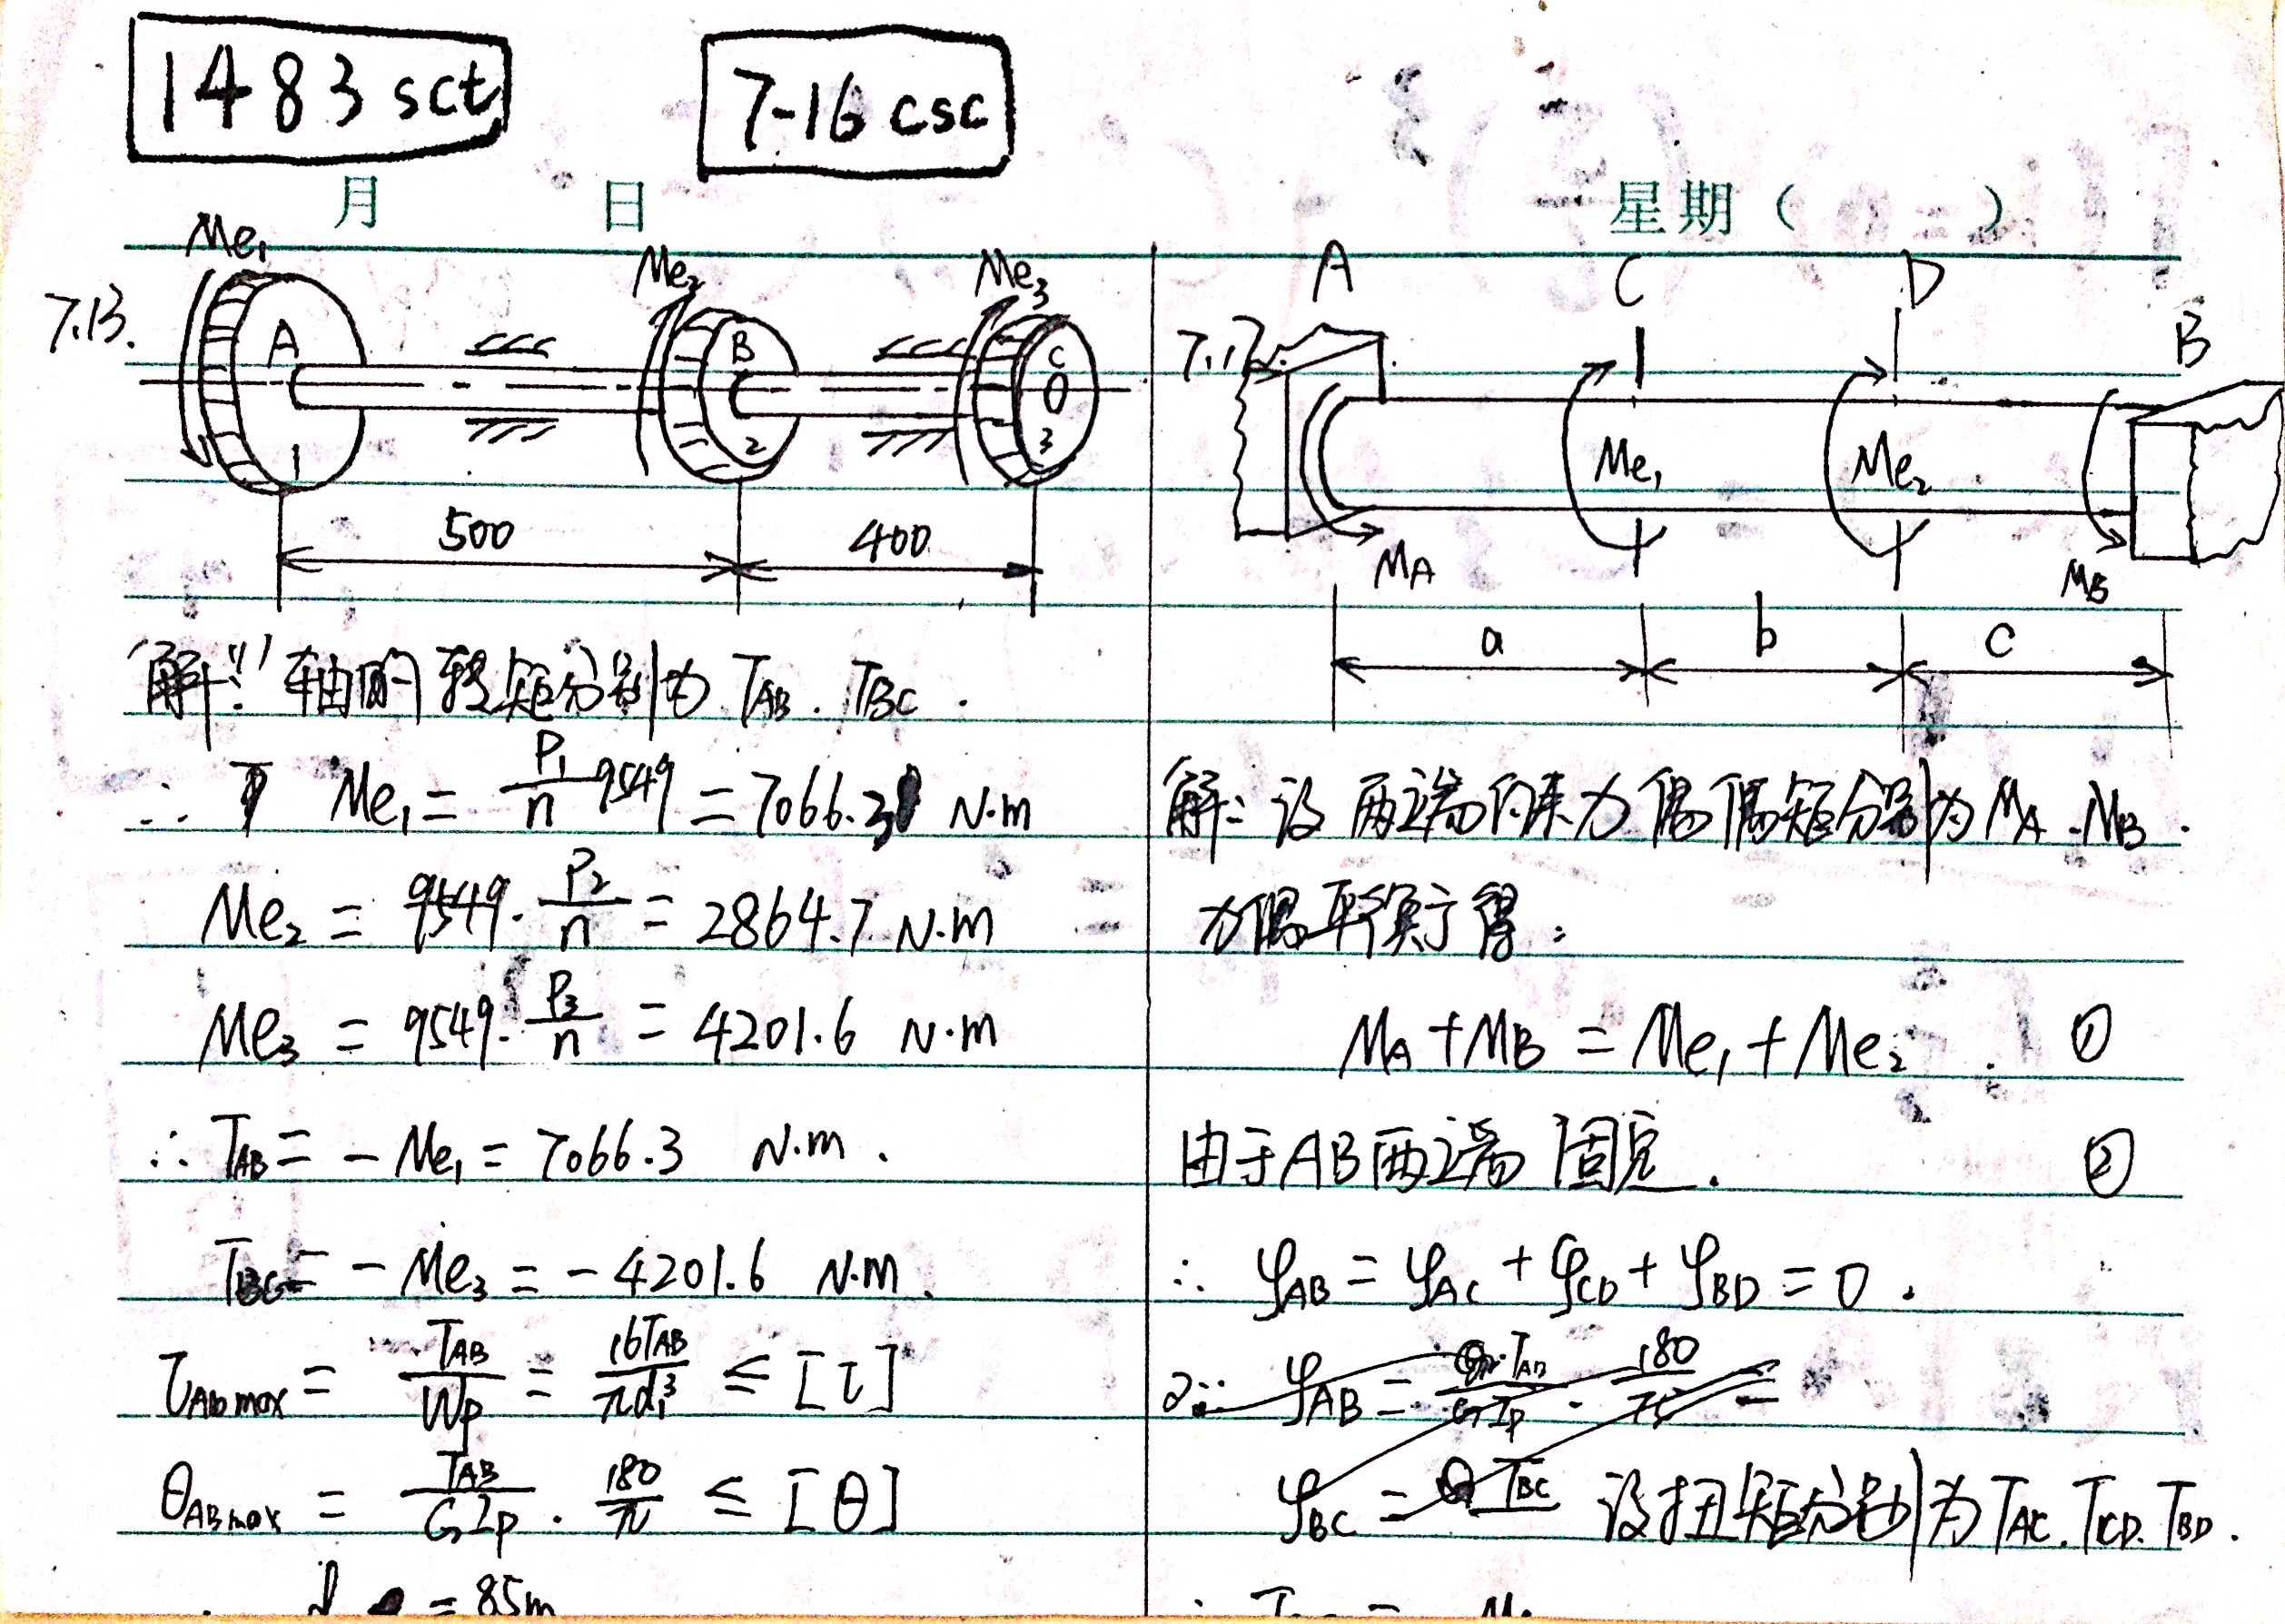 1483 sct
7-16 csc
月 日 星期（ ）
7.13.
Me₁
Me₂
Me₃
A
B
C
1
2
3
500
400
解: (1) 轴的转矩分别为 T_AB . T_BC .
∴ Me₁ = P₁/n 9549 = 7066.3 N·m
Me₂ = 9549 · P₂/n = 2864.7 N·m
Me₃ = 9549 · P₃/n = 4201.6 N·m
∴ T_AB = - Me₁ = 7066.3 N·m .
T_BC = - Me₃ = - 4201.6 N·m .
τ_ABmax = T_AB/Wp = 16T_AB/πd₁³ ≤ [τ]
θ_ABmax = T_AB/GIp · 180/π ≤ [θ]
= 85m
7.17.
A
C
D
B
Me₁
Me₂
M_A
M_B
a
b
c
解: 设两端约束力偶偶矩分别为 M_A . M_B .
力偶平衡得:
M_A + M_B = Me₁ + Me₂ . ①
由于AB两端固定. ②
∴ φ_AB = φ_AC + φ_CD + φ_BD = 0 .
φ_AB = T_AB/GIp · 180/π =
φ_BC = T_BC 设扭矩分别为 T_AC . T_CD . T_BD .